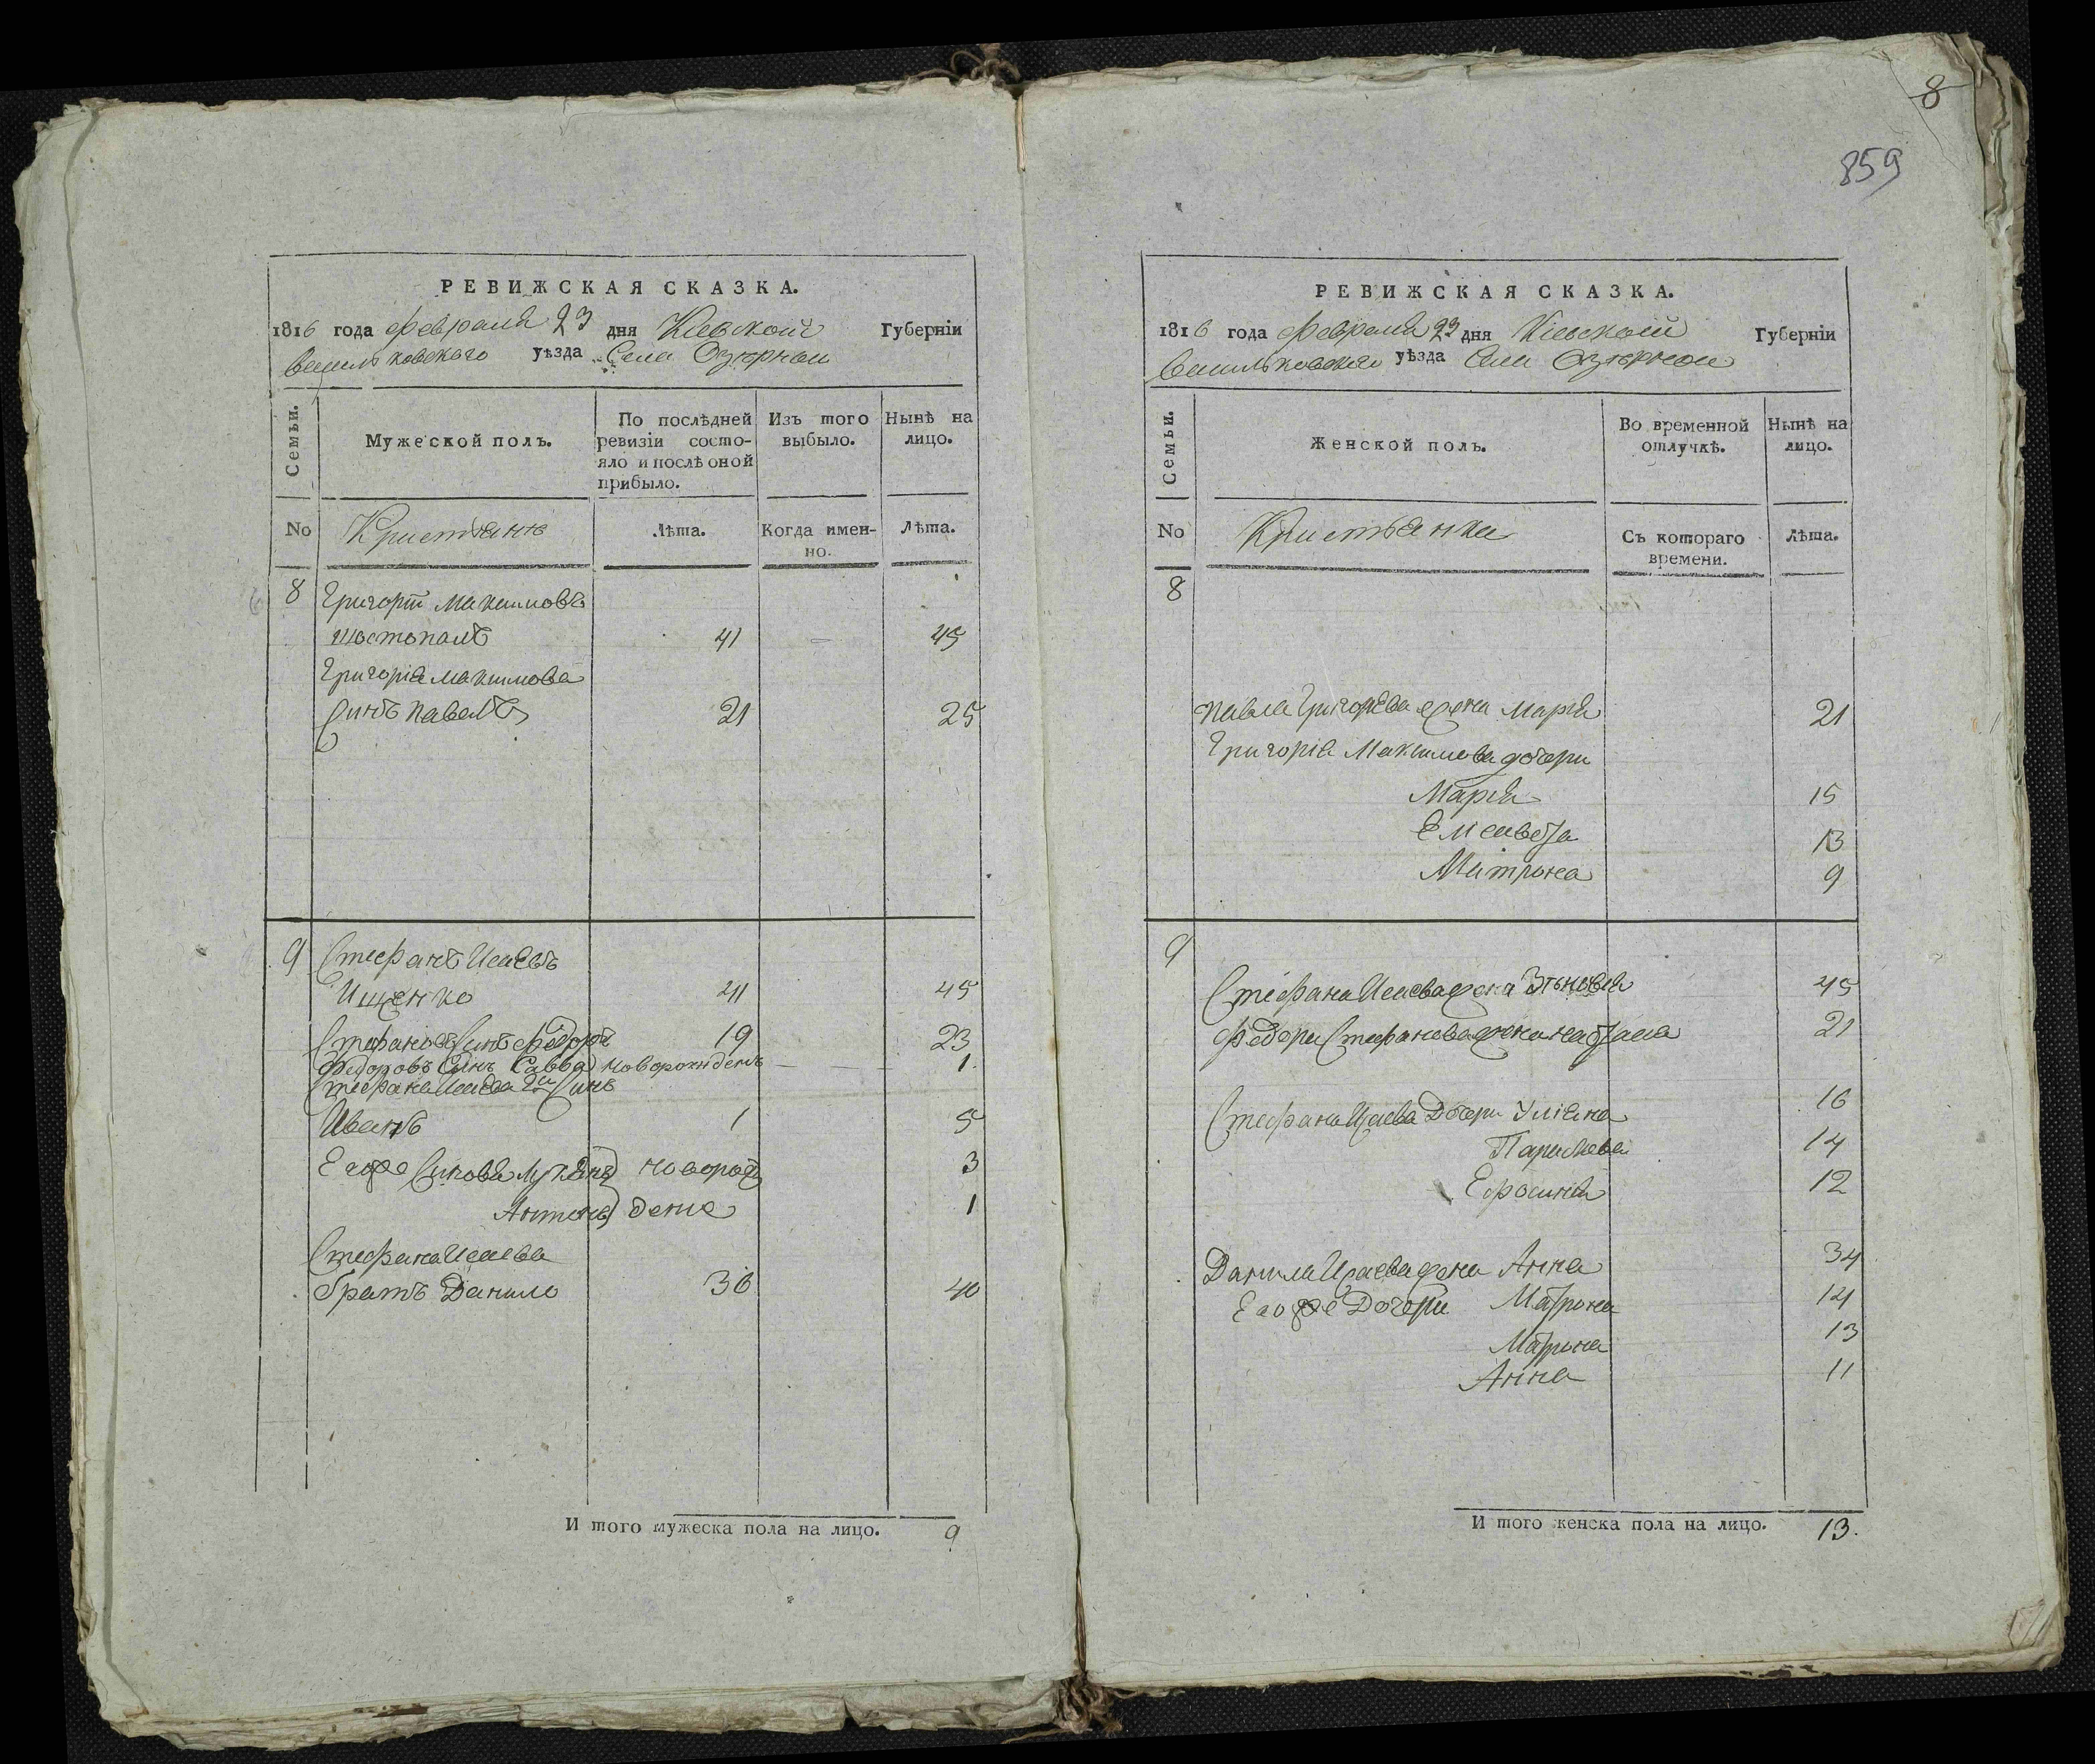 8
859
РЕВИЖСКАЯ СКАЗКА.
1816 года Февраля 23 дня Киевской Губерніи
Васильковскаго уѣзда Села Озѣрной
Семьи.
Мужеской полъ.
По послѣдней ревизіи состо-
яло и послѣ оной
прибыло.
Изъ того выбыло.
Нынѣ на лицо.
No
Кристьянѣ
Лѣта.
Когда имен-
но.
Лѣта.
8 Григорій Максимовъ
Шостопалъ 41 — 45
Григорія Максимова
Синъ Павелъ 21 25
9 Стефанъ Исаевъ
Ищенко 41 45
Стефановъ Синъ Федоръ 19 23
Федоровъ Сынъ Савва новорожденъ — — 1.
Стефана Исаева 2й Синъ
Иванъ 1 5
Егоже Синовя Лукянъ новорож 3
Антонъ дение 1
Стефана Исаева
Братъ Данило 36 40
И того мужеска пола на лицо. 9
РЕВИЖСКАЯ СКАЗКА.
1816 года Февраля 23 дня Кіевской Губерніи
Васильковскаго уѣзда Села Озѣрной
Семьи.
Женской полъ.
Во временной отлучкѣ.
Нынѣ на лицо.
No
Кристьянки
Съ котораго времени.
Лѣта.
8
Павла Григорева жена Марія 21
Григорія Максимова дочери
Марія 15
Елисавета 13
Матрона 9
9
Стефана Исаева жена Зѣновія 45
Федора Стефанова жена Наталя 21
Стефана Исаева Дочери Уліяна 16
Парасковея 14
Ефросинія 12
Данила Исаева жена Анна 34
Егоже Дочери Матрона 14
Матрона 13
Анна 11
И того женска пола на лицо. 13.